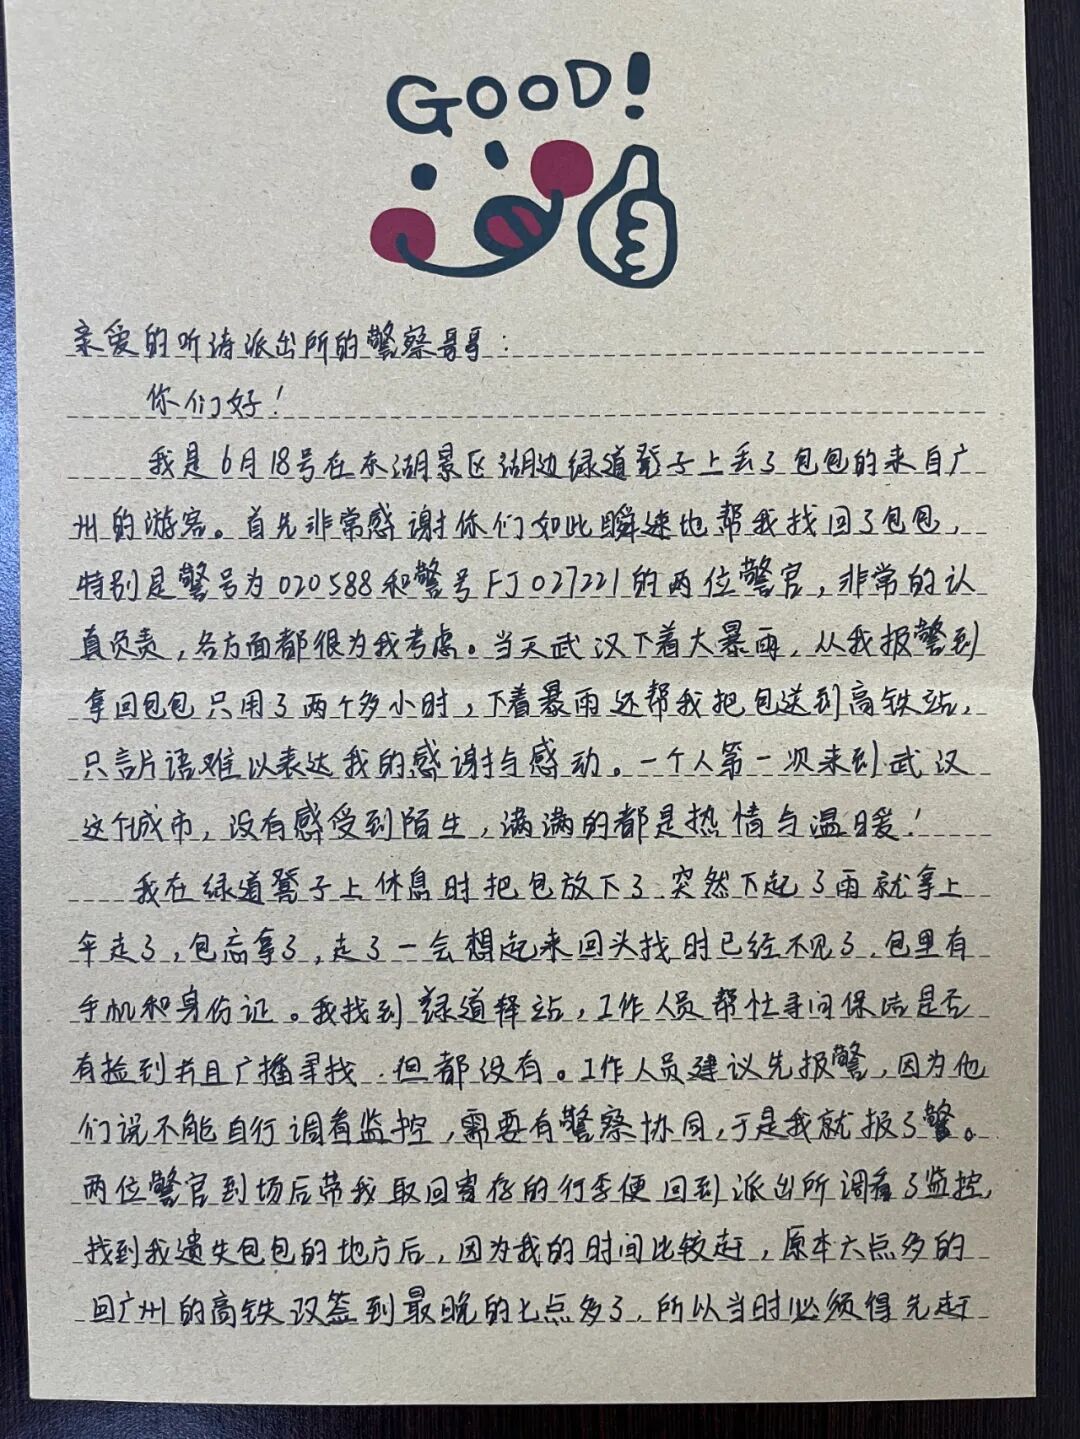 GOOD!
亲爱的听涛派出所的警察哥哥：
你们好！
我是6月18号在东湖景区湖边绿道凳子上丢了包包的来自广
州的游客。首先非常感谢你们如此瞬速地帮我找回了包包，
特别是警号为020588和警号FJ027221的两位警官，非常的认
真负责，各方面都很为我考虑。当天武汉下着大暴雨，从我报警到
拿回包包只用了两个多小时，下着暴雨还帮我把包送到高铁站，
只言片语难以表达我的感谢与感动。一个人第一次来到武汉
这个城市，没有感受到陌生，满满的都是热情与温暖！
我在绿道凳子上休息时把包放下了，突然下起了雨就拿上
伞走了，包忘拿了，走了一会想起来回头找时已经不见了，包里有
手机和身份证。我找到绿道驿站，工作人员帮忙寻问保洁是否
有捡到并且广播寻找，但都没有。工作人员建议先报警，因为他
们说不能自行调看监控，需要有警察协同，于是我就报了警。
两位警官到场后带我取回寄存的行李便回到派出所调看了监控，
找到我遗失包包的地方后，因为我的时间比较赶，原本六点多的
回广州的高铁改签到最晚的七点多了，所以当时必须得先赶